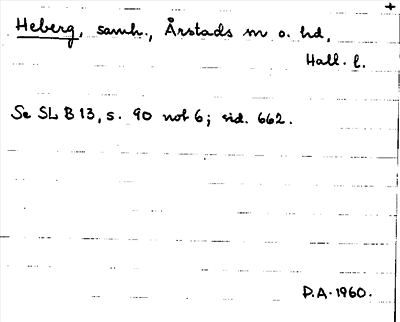 Heberg, samh., Årstads sn o. hd,
Hall. l.
Se SL B 13, s. 90 not 6; sid. 662.
D.A. 1960.